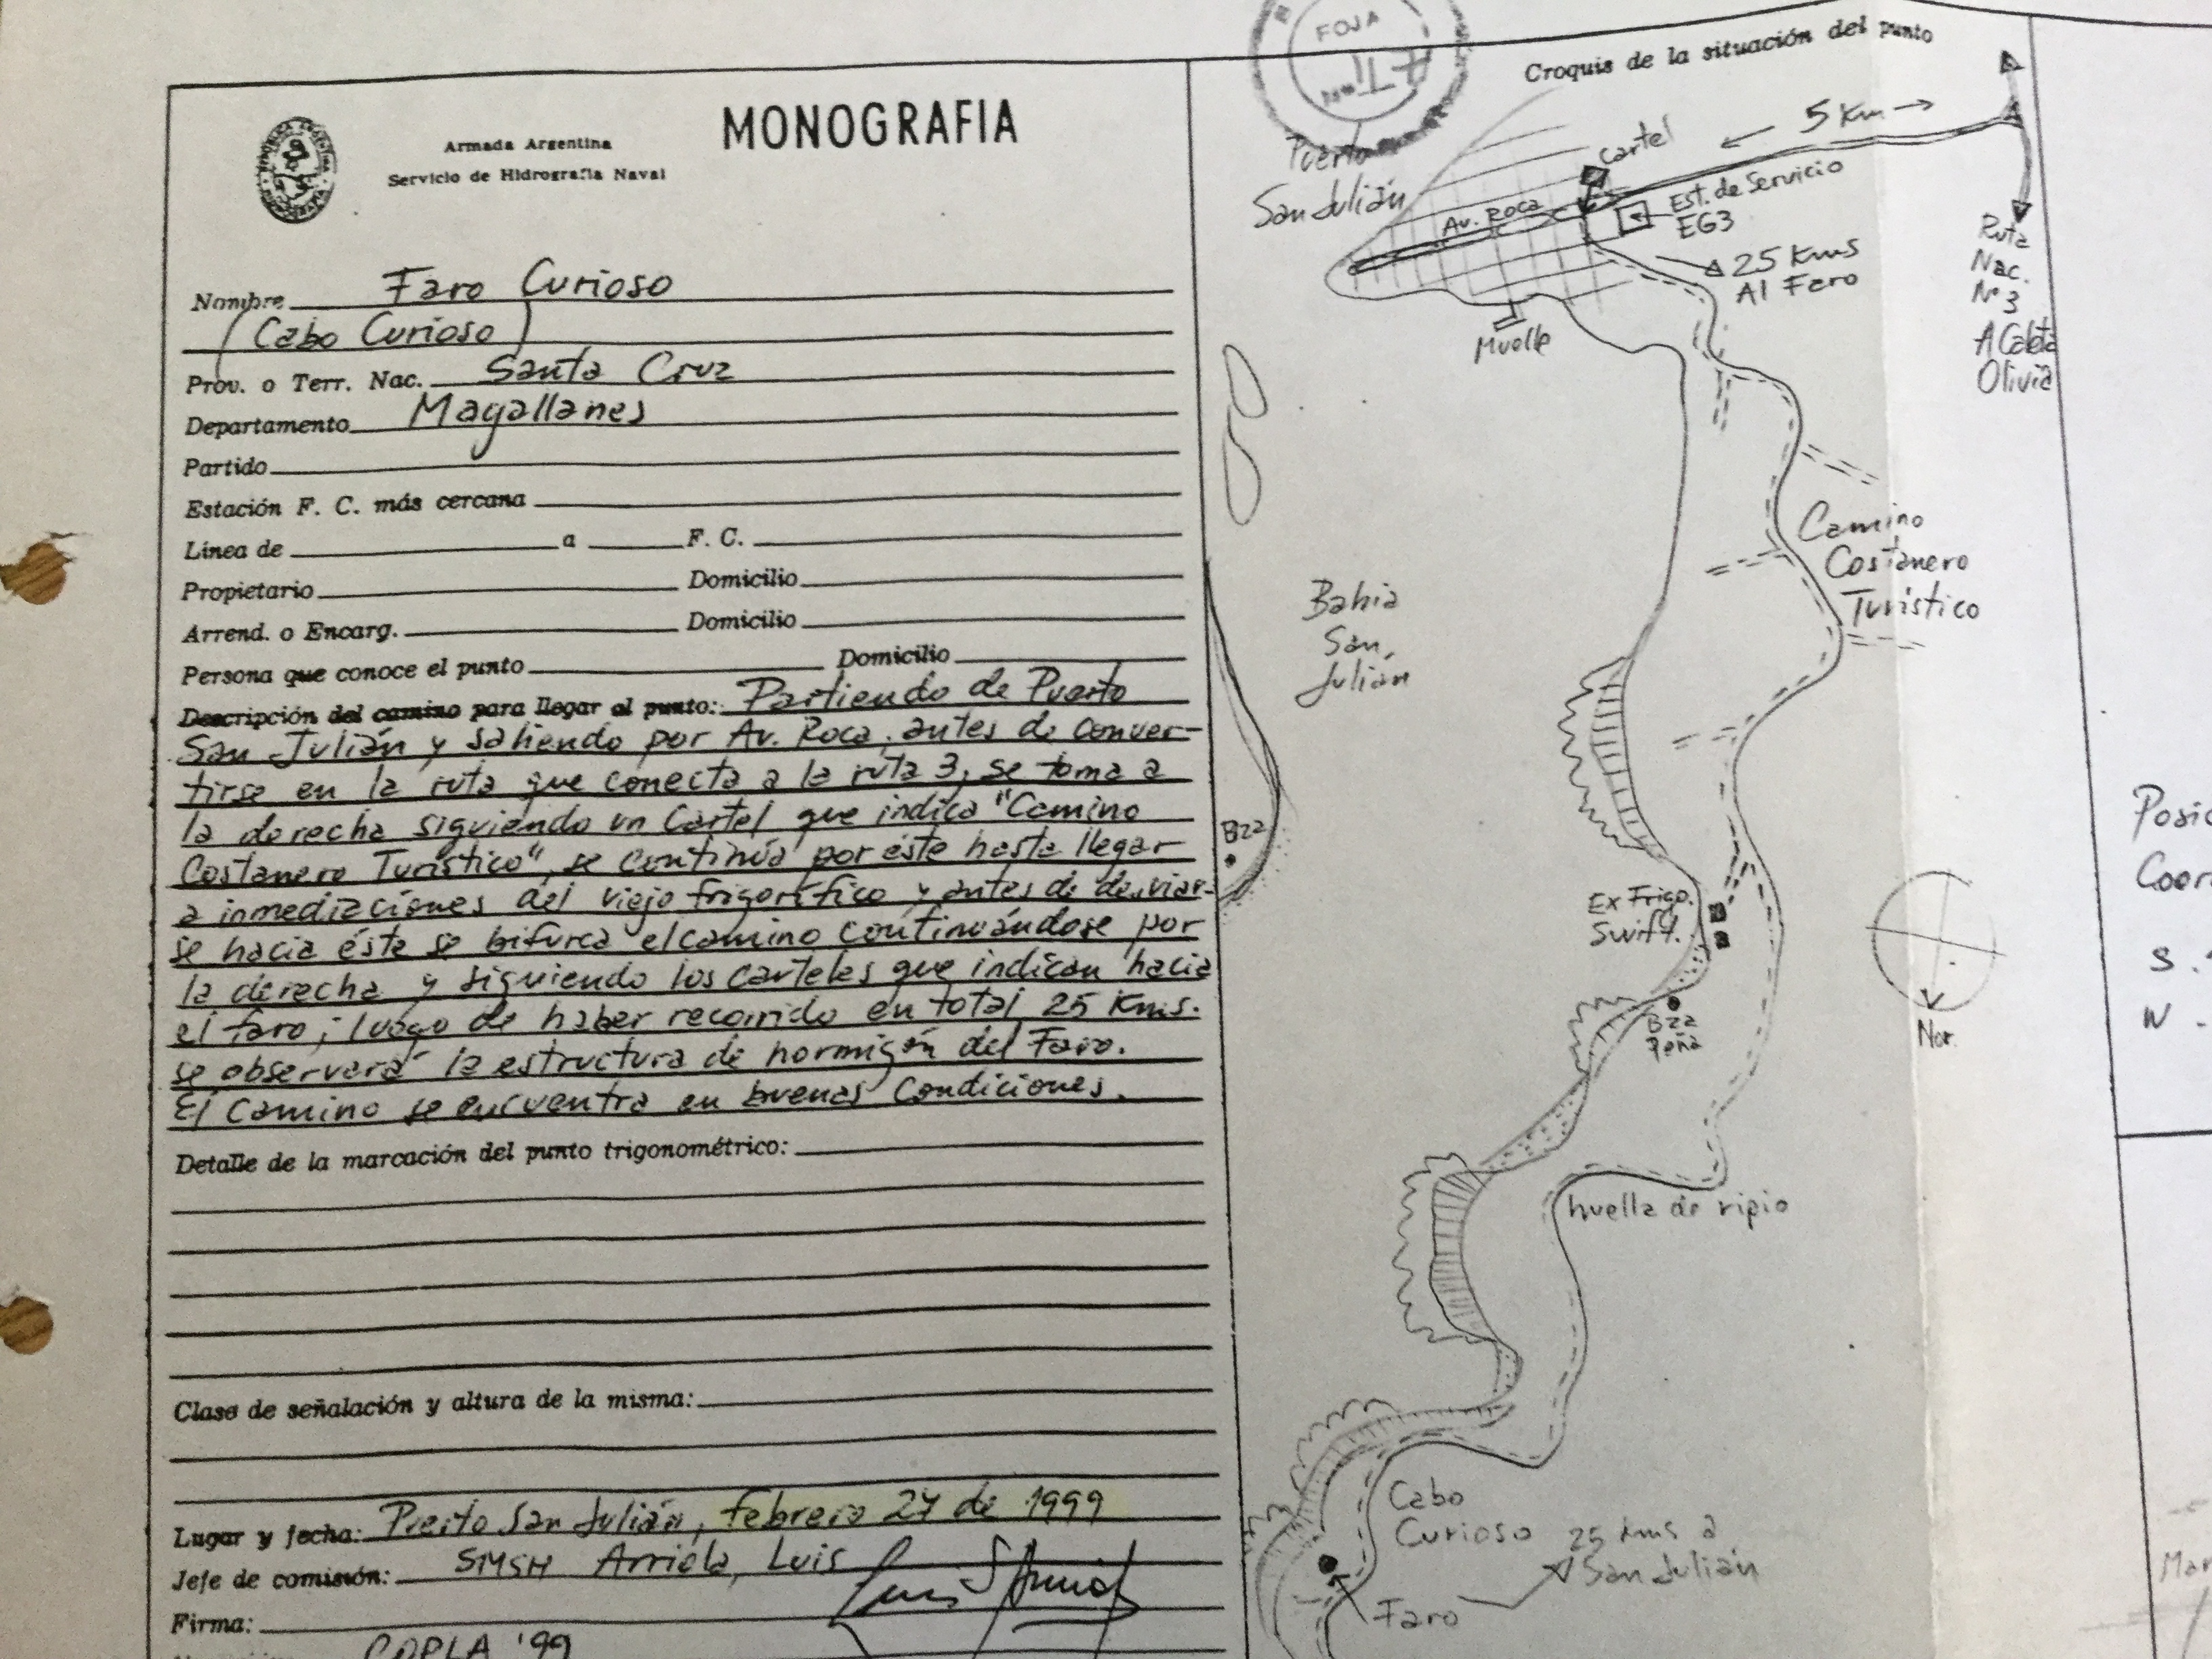 FOJA
MONOGRAFIA
Armada Argentina
Servicio de Hidrografía Naval
Nombre Faro Curioso
(Cabo Curioso)
Prov. o Terr. Nac. Santa Cruz
Departamento Magallanes
Partido
Estación F. C. más cercana
Línea de a F. C.
Propietario Domicilio
Arrend. o Encarg. Domicilio
Persona que conoce el punto Domicilio
Descripción del camino para llegar al punto: Partiendo de Puerto
San Julián y saliendo por Av. Roca, antes de conver-
tirse en la ruta que conecta a la ruta 3, se toma a
la derecha siguiendo un Cartel que indica "Camino
Costanero Turístico", se continúa por éste hasta llegar
a inmediaciones del viejo frigorífico y antes de desviar-
se hacia éste se bifurca el camino continuándose por
la derecha y siguiendo los carteles que indican hacia
el faro; luego de haber recorrido en total 25 Kms.
se observará la estructura de hormigón del Faro.
El Camino se encuentra en buenas Condiciones.
Detalle de la marcación del punto trigonométrico:
Clase de señalación y altura de la misma:
Lugar y fecha: Puerto San Julián, febrero 27 de 1999
Jefe de comisión: SMSH Arriola, Luis
Firma:
COPLA '99
Croquis de la situación del punto
5 Km
Puerto
San Julián
Cartel
Av. Roca
Est. de Servicio
EG3
25 Kms
Al Faro
Muelle
Ruta
Nac.
Nº 3
A Caleta
Olivia
Camino
Costanero
Turístico
Bahia
San
Julián
Bza
Ex Frigo.
Swift.
Bza
Peña
Nor.
huella de ripio
Cabo
Curioso
25 Kms a
San Julián
Faro
S.
W